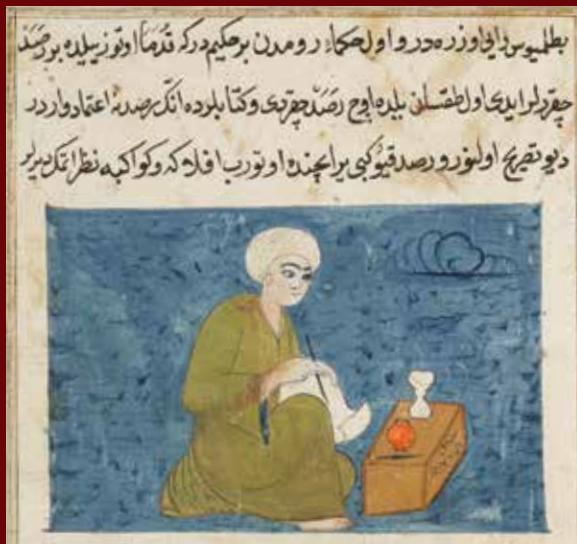 بطلميوس رايى اوزره در و اول حكماء رومدن بر حكيم در كه قدما اوتوز ييلده بر رصد
چقردلر ايدى اول طقسان ييلده اوچ رصد چقردى و كتابلرده انك رصدنه اعتماد واردر
ديو تصريح اولنور و رصد قيو كبى ير ايچنده اوتورب افلاكه و كواكبه نظر اتمك ديرلر